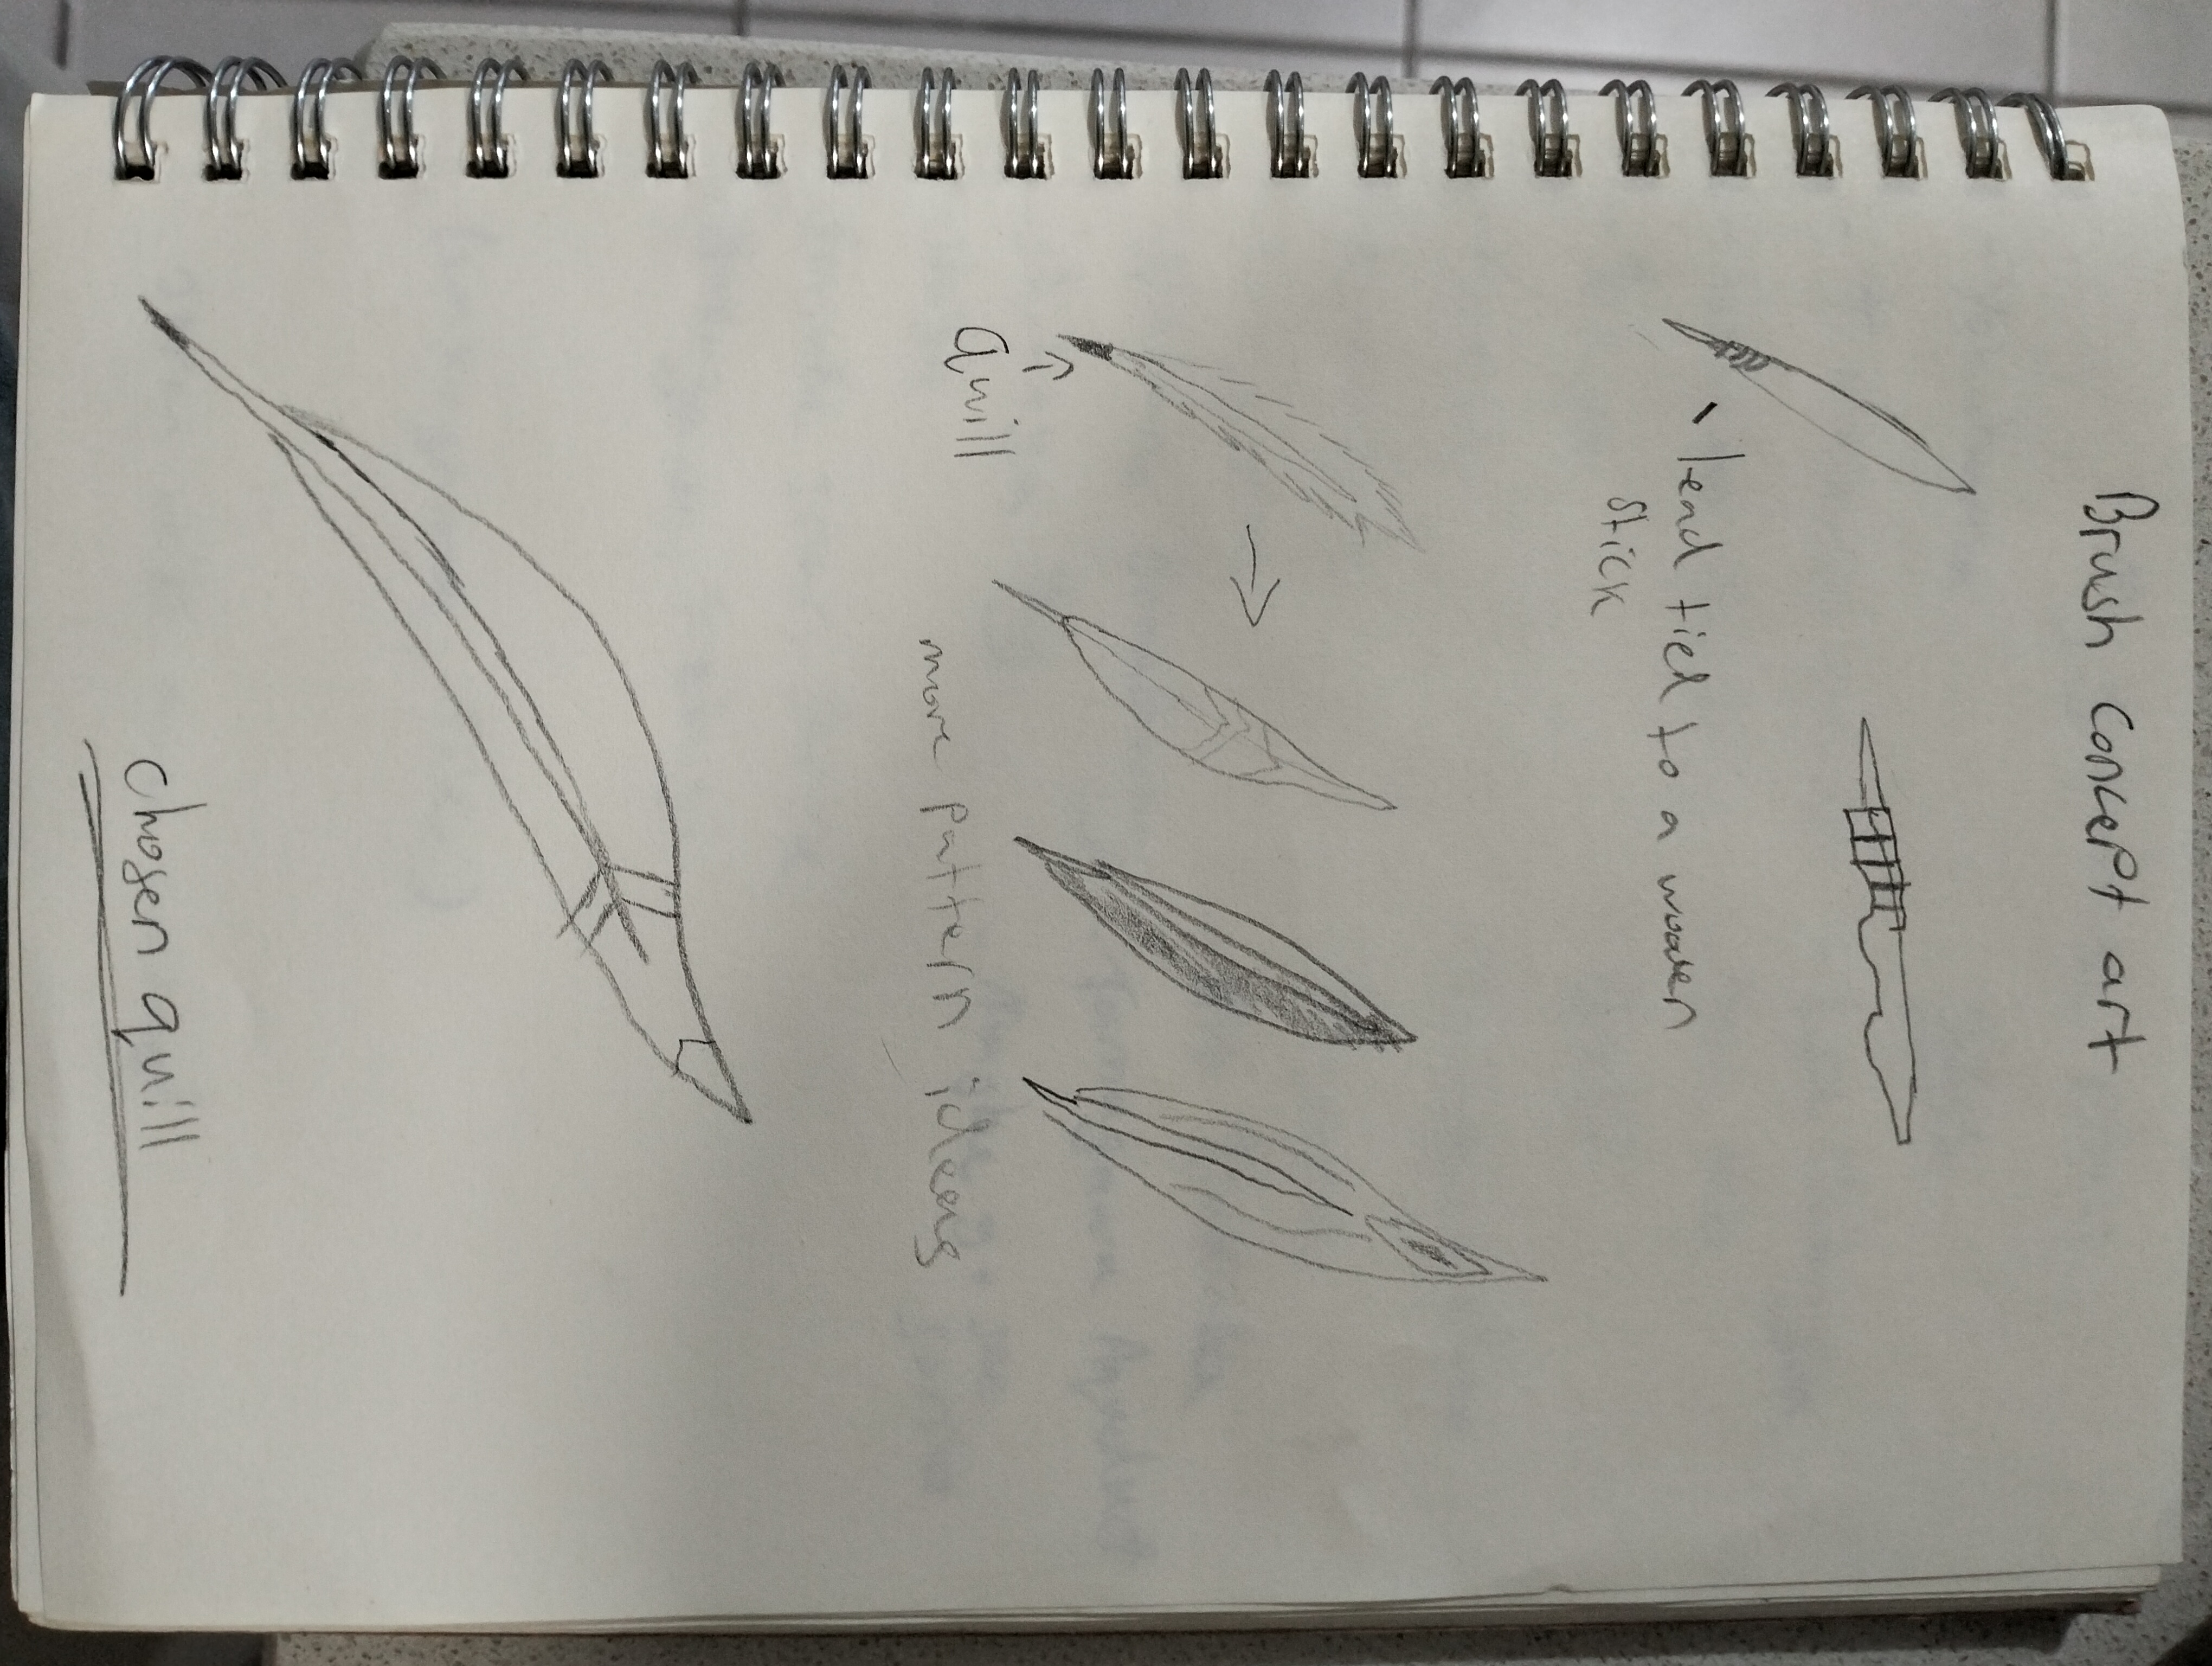 Brush Concept art
lead tied to a wooden
stick
Quill
more pattern ideas
chosen quill